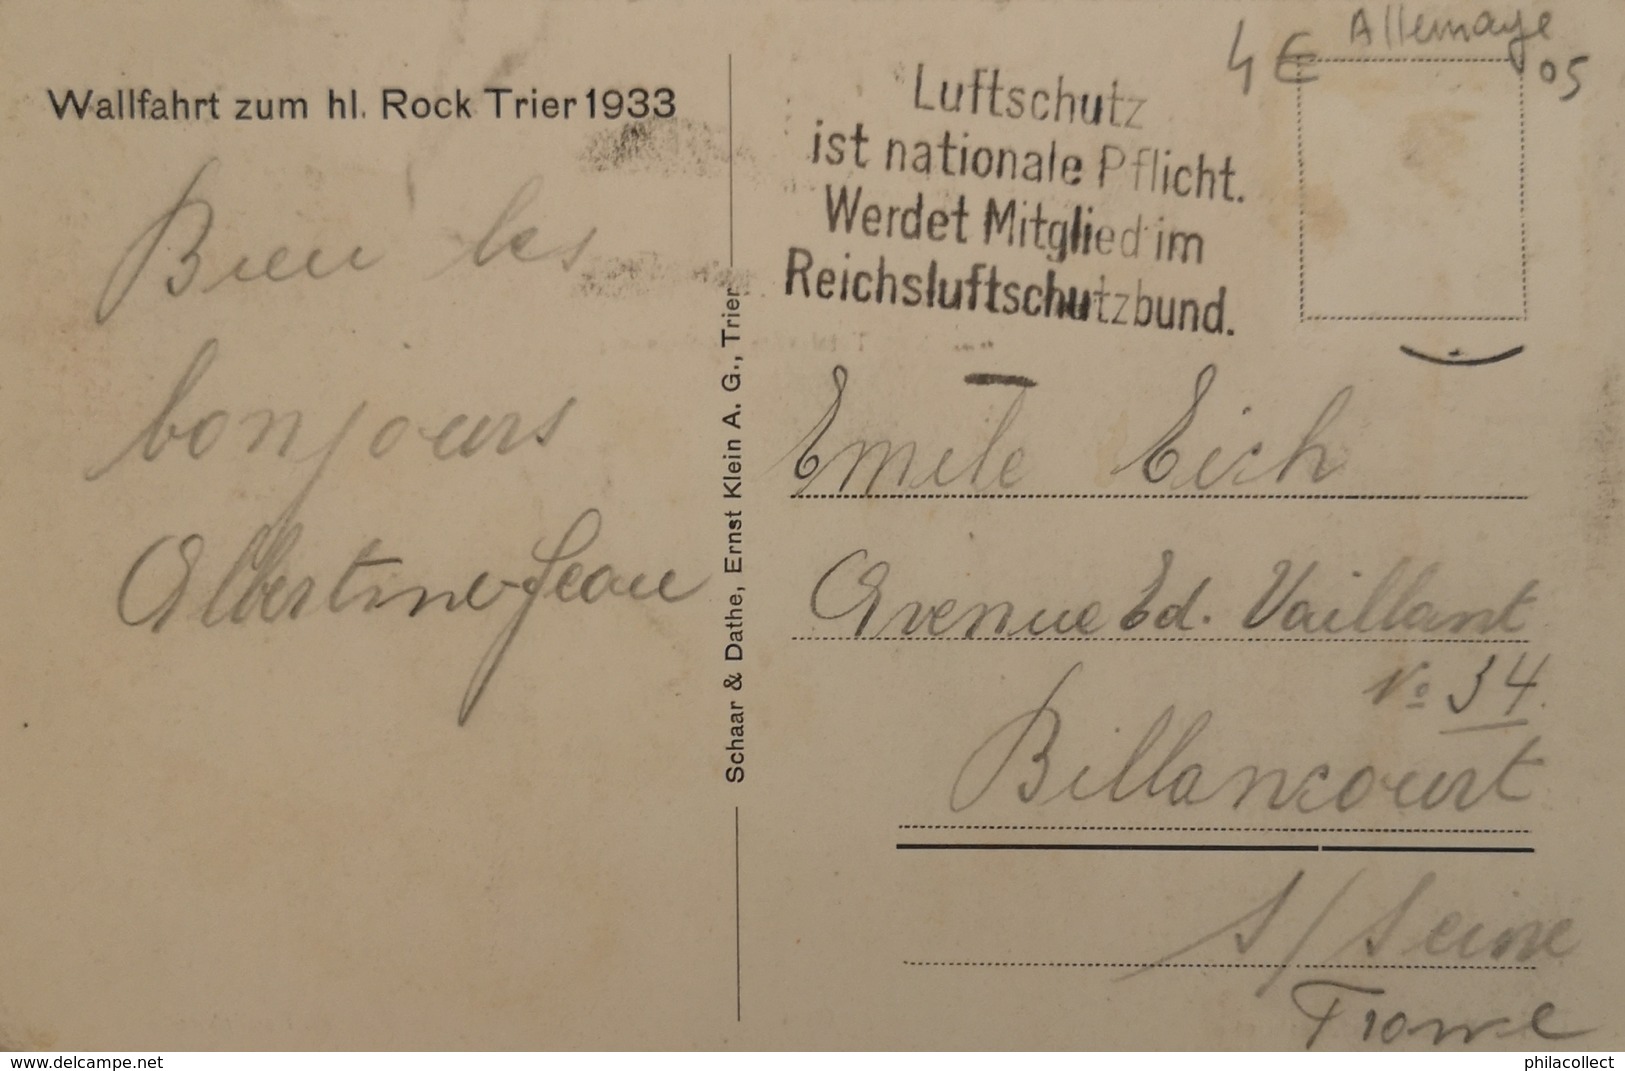 4 € Allemagne
05
Wallfahrt zum hl. Rock Trier 1933
Luftschutz
ist nationale Pflicht.
Werdet Mitglied im
Reichsluftschutzbund.
Bien les
bonjours
Albertine-Jean
Schaar & Dathe, Ernst Klein A. G., Trier
Emile Eich
Avenue Ed. Vaillant
No 34.
Billancourt
S/Seine
France
www.delcampe.net
philacollect